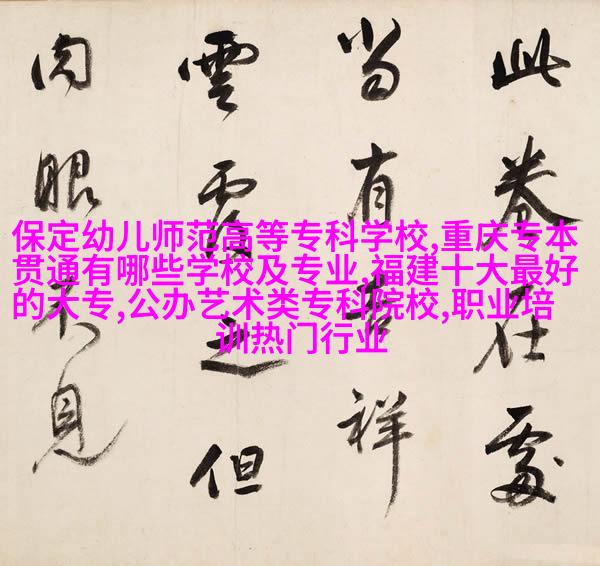 此卷在處
當有吉祥
雲覆之但
肉眼不見
保定幼儿师范高等专科学校,重庆专本
贯通有哪些学校及专业,福建十大最好
的大专,公办艺术类专科院校,职业培
训热门行业